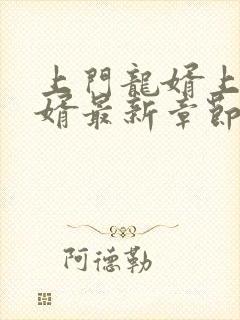 上門龍婿上
婿最新章節
阿德勒